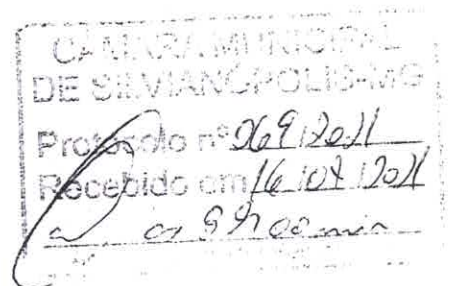 CÂMARA MUNICIPAL
DE SILVIANÓPOLIS-MG
Protocolo nº 069/2021
Recebido em 16/07/2021
às 9h00 min